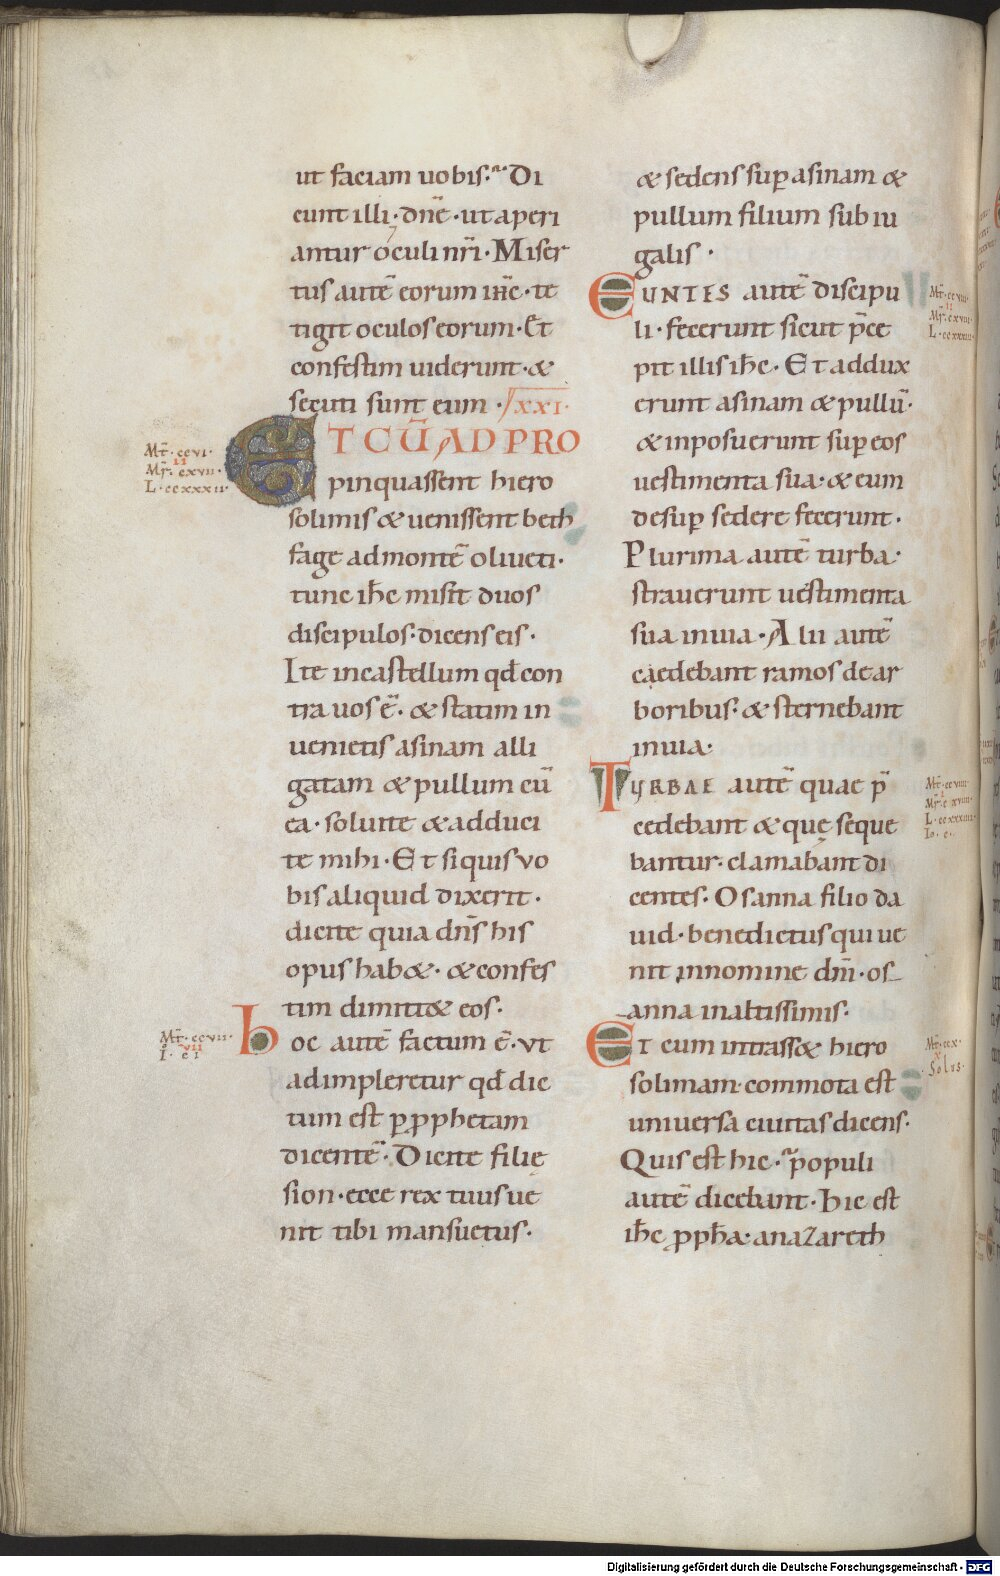 ut faciam uobis. Di
cunt illi. dnē. ut aperi
antur oculi nr̄i. Miser
tus autē eorum ih̄c. te
tigit oculos eorum. Et
confestim uiderunt. &
secuti sunt eum. XXI.
ET CŪ AD PRO
pinquassent hiero
solimis & uenissent beth
fage ad montē oliueti.
tunc ih̄c misit duos
discipulos. dicens eis.
Ite in castellum qđ con
tra uos ē. & statim in
uenietis asinam alli
gatam & pullum cū
ea. soluite & adduci
te mihi. Et siquis uo
bis aliquid dixerit.
dicite quia dn̄s his
opus hab&. & confes
tim dimitt& eos.
hoc autē factum ē. ut
adimpleretur qđ dic
tum est ꝑ ꝓphetam
dicentē. Dicite filię
sion. ecce rex tuus ue
nit tibi mansuetus.
Mt̄. ccvi.
Mr̄. cxvii.
II
L. ccxxxii.
Mt̄. ccvii.
VII
& sedens suꝑ asinam &
pullum filium sub iu
galis.
EUNTES autē discipu
li. fecerunt sicut p̄ce
pit illis ih̄c. Et addux
erunt asinam & pullū.
& inposuerunt suꝑ eos
uestimenta sua. & eum
desuꝑ sedere fecerunt.
Plurima autē turba
strauerunt uestimenta
sua in uia. Alii autē
caedebant ramos de ar
boribus. & sternebant
in uia.
TURBAE autē quae p̄
cedebant & quę seque
bantur. clamabant di
centes. Osanna filio da
uid. benedictus qui ue
nit in nomine dn̄i. os
anna in altissimis.
Et cum intrass& hiero
solimam. commota est
uniuersa ciuitas dicens.
Quis est hic. populi
autē dicebant. Hic est
ih̄c ꝓph&a. a nazareth
Mt̄. ccviii.
II
Mr̄. cxviii.
L. ccxxxiii.
Mt̄. ccviiii.
I
Mr̄. cxviiii.
L. ccxxxiiii.
Io. c.
Mt̄. ccx.
X
Solus.
Digitalisierung gefördert durch die Deutsche Forschungsgemeinschaft - DFG